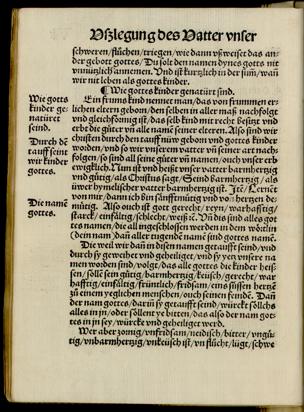 Vßlegung des Vatter vnser
schweren/flůchen/triegen/wie dann vß weiset das an-
der gebott gottes/Du solt den namen dynes gottes nit
vnnützlich annemen. Vnd ist kurtzlich in der sum̄/wan̄
wir nit leben als gottes kinder.
¶ Wie gottes kinder genaturt sind.
Wie gotts
kinder ge-
naturet
seind.
Ein frums kind nennet man/das von frummen er-
lichen eltern geborn/den selben in aller maß nachfolgt
vnd gleichfömig ist/das selb kind mit recht besitzt vnd
erbt die gůter vn̄ alle namē seiner elteren. Also sind wir
Durch dē
tauff seind
wir kinder
gottes.
christen durch den tauff nüw geborn vnd gottes kinder
worden/vnd so wir vnserem vatter vn̄ seiner art nach-
folgen/so sind all seine gůter vn̄ namen/ouch vnser erb
ewigklich. Nun ist vnd heißt vnser vatter barmhertzig
vnd gůtig/als Christus sagt/Seind barmhertzig/als
üwer hymelischer vatter barmhertzig ist. Jtē/Lernēt
von mir/dann ich bin sanfftmütig vnd von hertzen de-
Die namē
gottes.
mütig. Also ouch ist gott gerecht/reyn/warhafftig/
starck/einfältig/schlecht/weiß ꝛc. Vn̄ dis sind alles got-
tes namen/die all ingeschlossen werden in dem wörtlin
(den nam) dan̄ aller tugende namē sind gottes namē.
Die weil wir dan̄ in disen namen getaufft seind/vnd
durch sy geweihet vnd geheiliget/vnd sy yetz vnsere na-
men worden sind/volgt/das alle gottes die kinder heis-
sen/solle sein gůtig/barmhertzig/keüsch/gerecht/war
hafftig/einfältig/früntlich/fridsam/eins süssen hertzē
zů einem yeglichen menschen/ouch seinen feinde. Dan̄
der nam gottes/darin̄ sy getaufft seind/würckt söllichs
alles in jn/oder söllent ye bitten/das also der nam got-
tes in jn sey/würcke vnd geheiliget werd.
Wer aber zornig/vnfridsam/neidisch/bitter/vngü-
tig/vnbarmhertzig/vnkeüsch ist/vn̄ flůcht/lügt/schwe